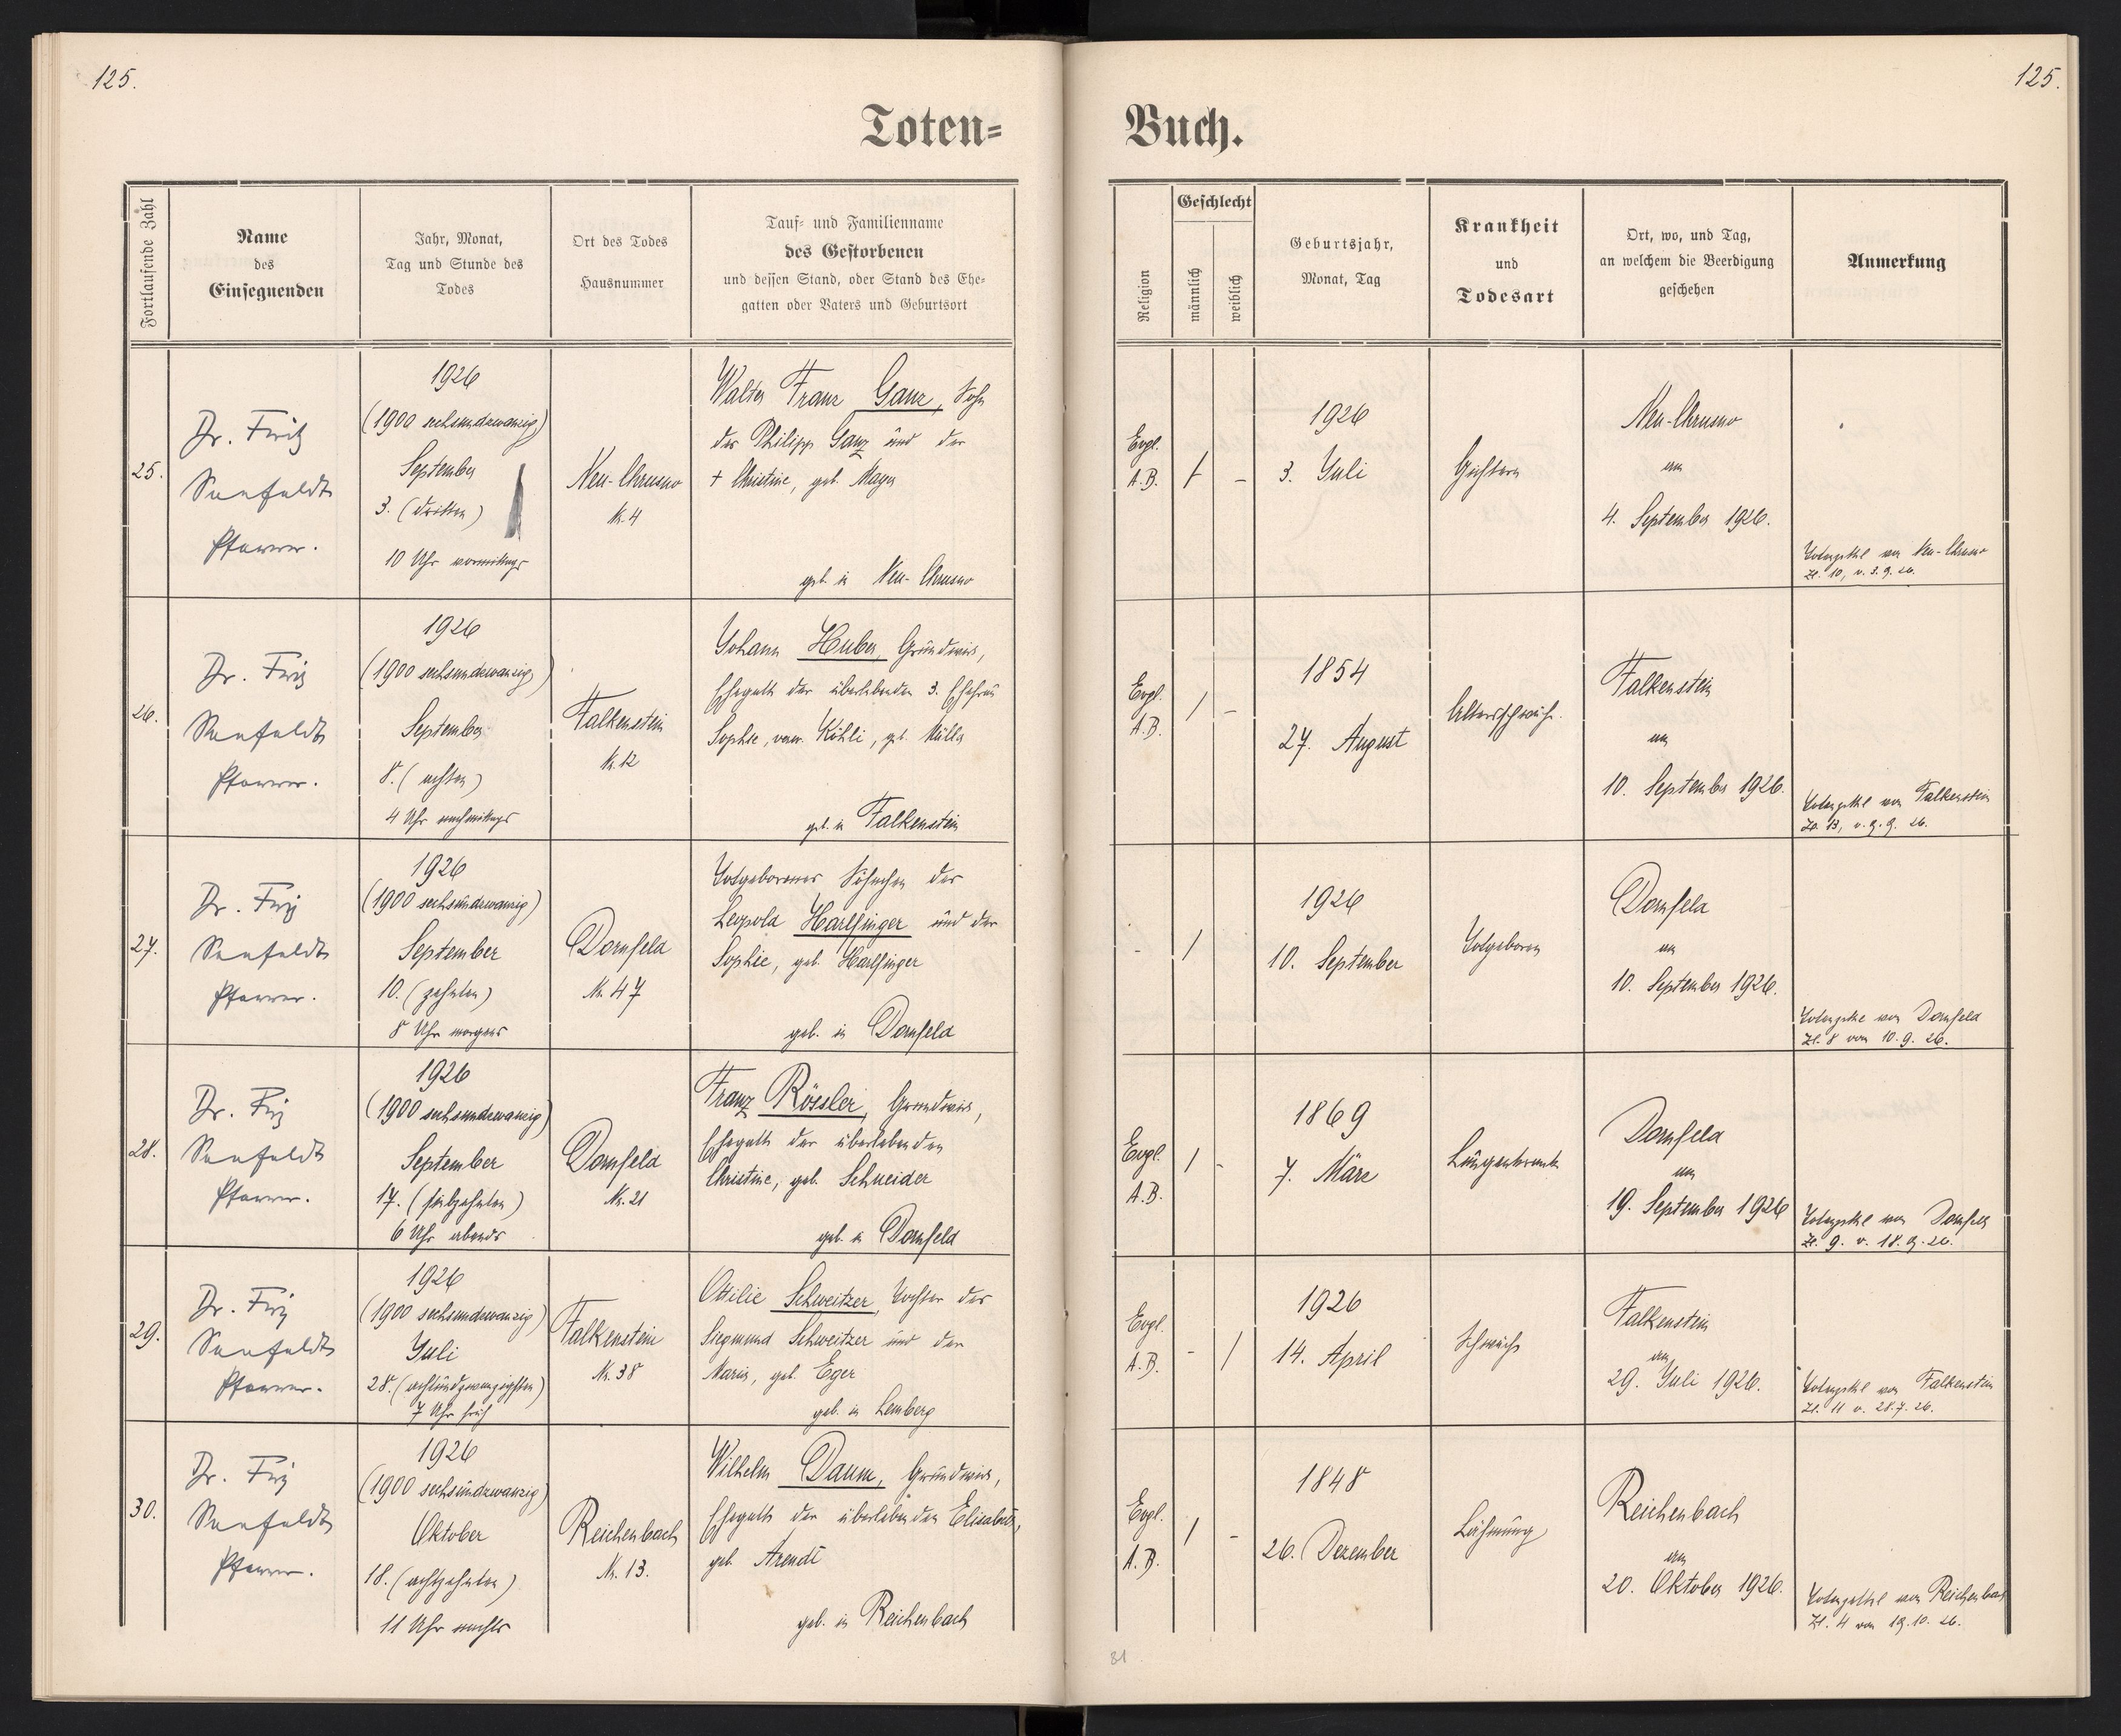 125.
125.
Toten=
Buch.
Fortlaufende Zahl
Name
des
Einsegnenden
Jahr, Monat,
Tag und Stunde des
Todes
Ort des Todes
Hausnummer
Tauf= und Familienname
des Gestorbenen
und dessen Stand, oder Stand des Ehe=
gatten oder Vaters und Geburtsort
Religion
Geschlecht
männlich
weiblich
Geburtsjahr,
Monat, Tag
Krankheit
und
Todesart
Ort, wo, und Tag,
an welchem die Beerdigung
geschehen
Anmerkung
25.
Dr. Fritz
Seefeldt
Pfarrer.
1926
(1900 sechsundzwanzig)
September
3. (dritten)
10 Uhr vormittags
Neu-Chrusno
Nr. 4
Walter Franz Ganz, Sohn
des Philipp Ganz und der
+ Christine, geb. Mayer
geb. in Neu-Chrusno
Evgl.
A.B.
/ -
1926
3. Juli
Gichtern
Neu-Chrusno
am
4. September 1926.
Totenzettel von Neu-Chrusno
Zl. 10, v. 3.9.26.
26.
Dr. Fritz
Seefeldt
Pfarrer.
1926
(1900 sechsundzwanzig)
September
8. (achten)
4 Uhr nachmittags
Falkenstein
Nr. 12
Johann Huber, Grundwirt,
Ehegatte der überlebenden 3. Ehefrau
Sophie, verw. Köhli, geb. Müller
geb. in Falkenstein
Evgl.
A.B.
/ -
1854
27. August
Altersschwäche.
Falkenstein
am
10. September 1926.
Totenzettel von Falkenstein
Zl. 13, v. 9.9. 26.
27.
Dr. Fritz
Seefeldt
Pfarrer.
1926
(1900 sechsundzwanzig)
September
10. (zehnten)
8 Uhr morgens
Dornfeld
Nr. 47
Totgeborenes Söhnchen des
Leopold Harlfinger und der
Sophie, geb. Harlfinger
geb. in Dornfeld
- /
1926
10. September
Totgeboren
Dornfeld
am
10. September 1926.
Totenzettel von Dornfeld
Zl. 8 vom 10.9.26.
28.
Dr. Fritz
Seefeldt
Pfarrer.
1926
(1900 sechsundzwanzig)
September
17. (siebzehnten)
6 Uhr abends
Dornfeld
Nr. 21
Franz Rössler, Grundwirt,
Ehegatte der überlebenden
Christine, geb. Schneider
geb. in Dornfeld
Evgl.
A.B.
/ -
1869
7. März
Lungenkrank
Dornfeld
am
19. September 1926
Totenzettel von Dornfeld
Zl. 9. v. 18.9.26.
29.
Dr. Fritz
Seefeldt
Pfarrer.
1926
(1900 sechsundzwanzig)
Juli
28. (achtundzwanzigsten)
7 Uhr früh
Falkenstein
Nr. 38
Ottilie Schweitzer, Tochter des
Siegmund Schweitzer und der
Maria, geb. Eger
geb. in Lemberg
Evgl.
A.B.
- /
1926
14. April
Schwäche
Falkenstein
am
29. Juli 1926.
Totenzettel von Falkenstein
Zl. 11 v. 28.7.26.
30.
Dr. Fritz
Seefeldt
Pfarrer.
1926
(1900 sechsundzwanzig)
Oktober
18. (achtzehnten)
11 Uhr nachts
Reichenbach
Nr. 13.
Wilhelm Daum, Grundwirt,
Ehegatte der überlebenden Elisabeth,
geb. Arendt
geb. in Reichenbach
Evgl.
A.B.
/ -
1848
26. Dezember
Lähmung
Reichenbach
am
20. Oktober 1926.
Totenzettel von Reichenbach
Zl. 4 vom 19.10.26.
31